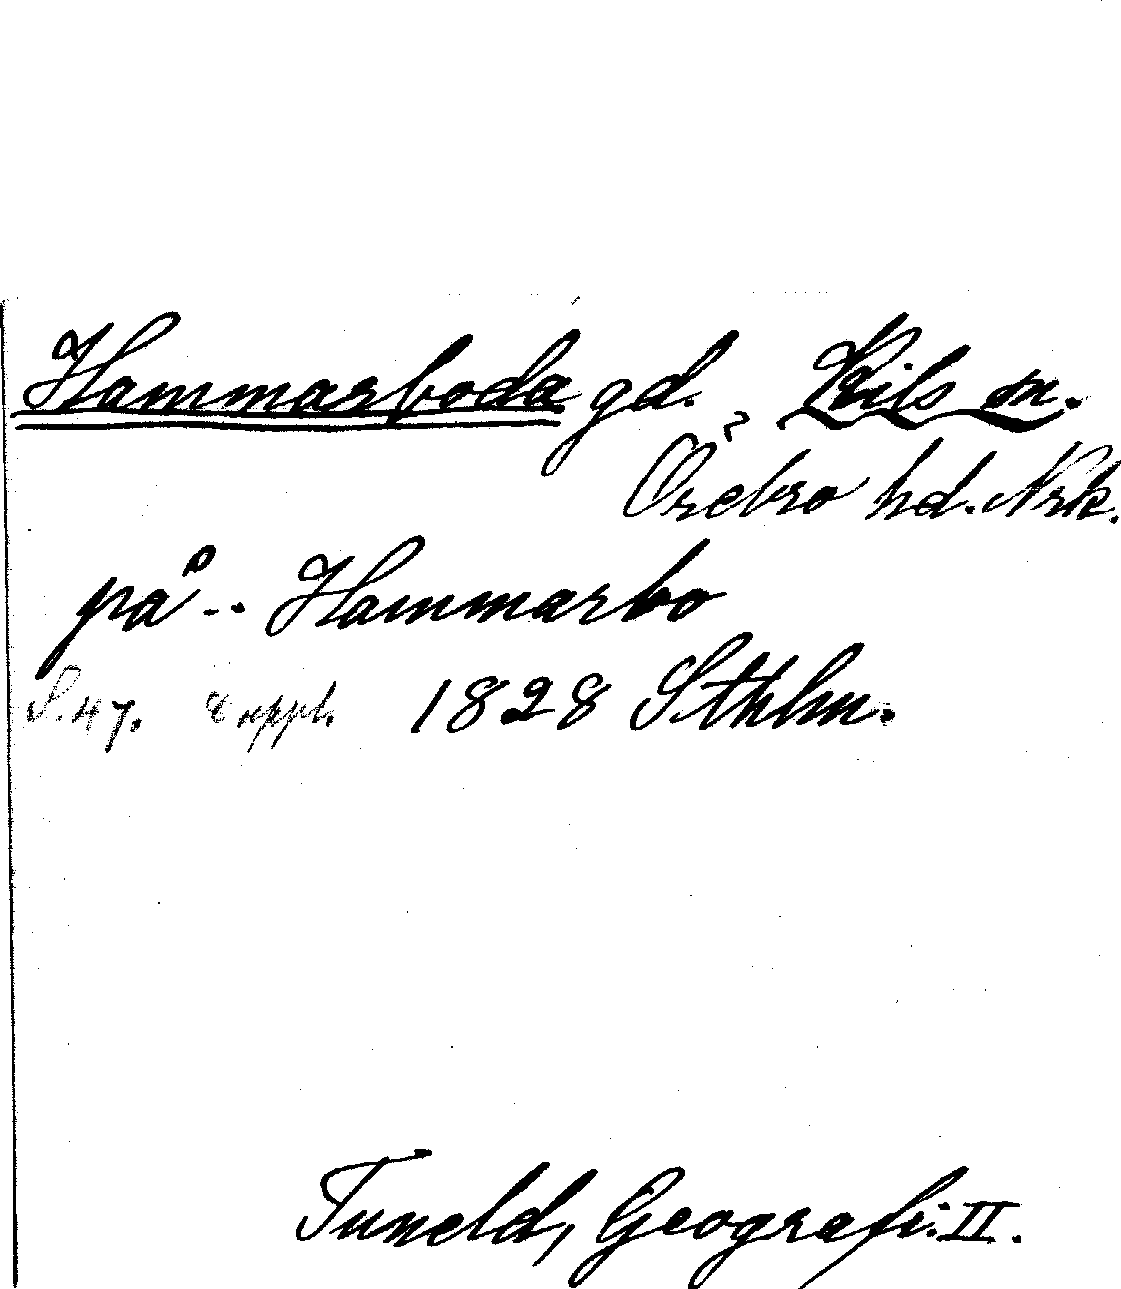 Hammarboda gd. Kils sn.
Örebro hd. Nrk.
på -- Hammarbo
S. 47. 8 uppl. 1828 Sthlm.
Tuneld, Geografi. II.